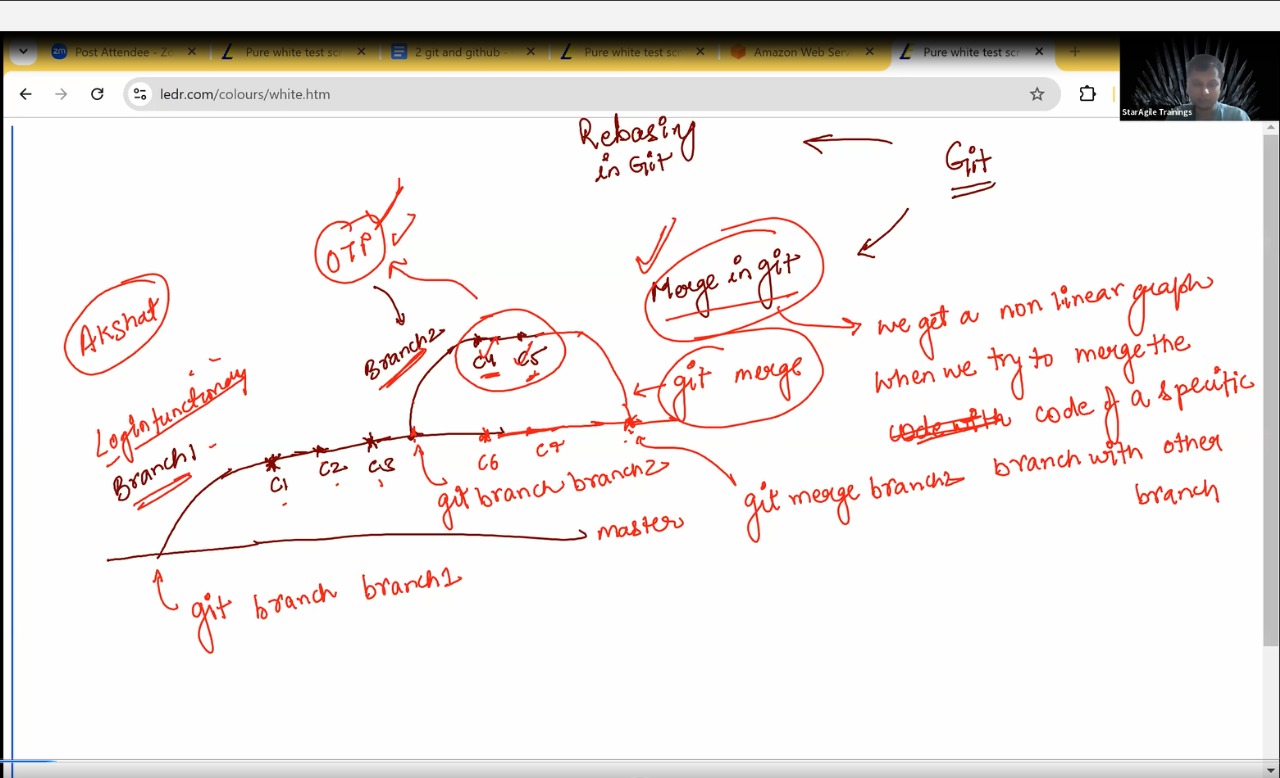 Post Attendee - Zo
Pure white test scr
2 git and github
Pure white test scr
Amazon Web Serv
Pure white test scr
ledr.com/colours/white.htm
StarAgile Trainings
Rebasing
in Git
Git
OTP
Merge in git
Akshat
Branch2
C4 C5
git merge
we get a non linear graph
when we try to merge the
code with code of a specific
branch with other
branch
Login functionary
Branch1
C1 C2 C3
C6 C7
git branch branch2
git merge branch2
master
git branch branch1